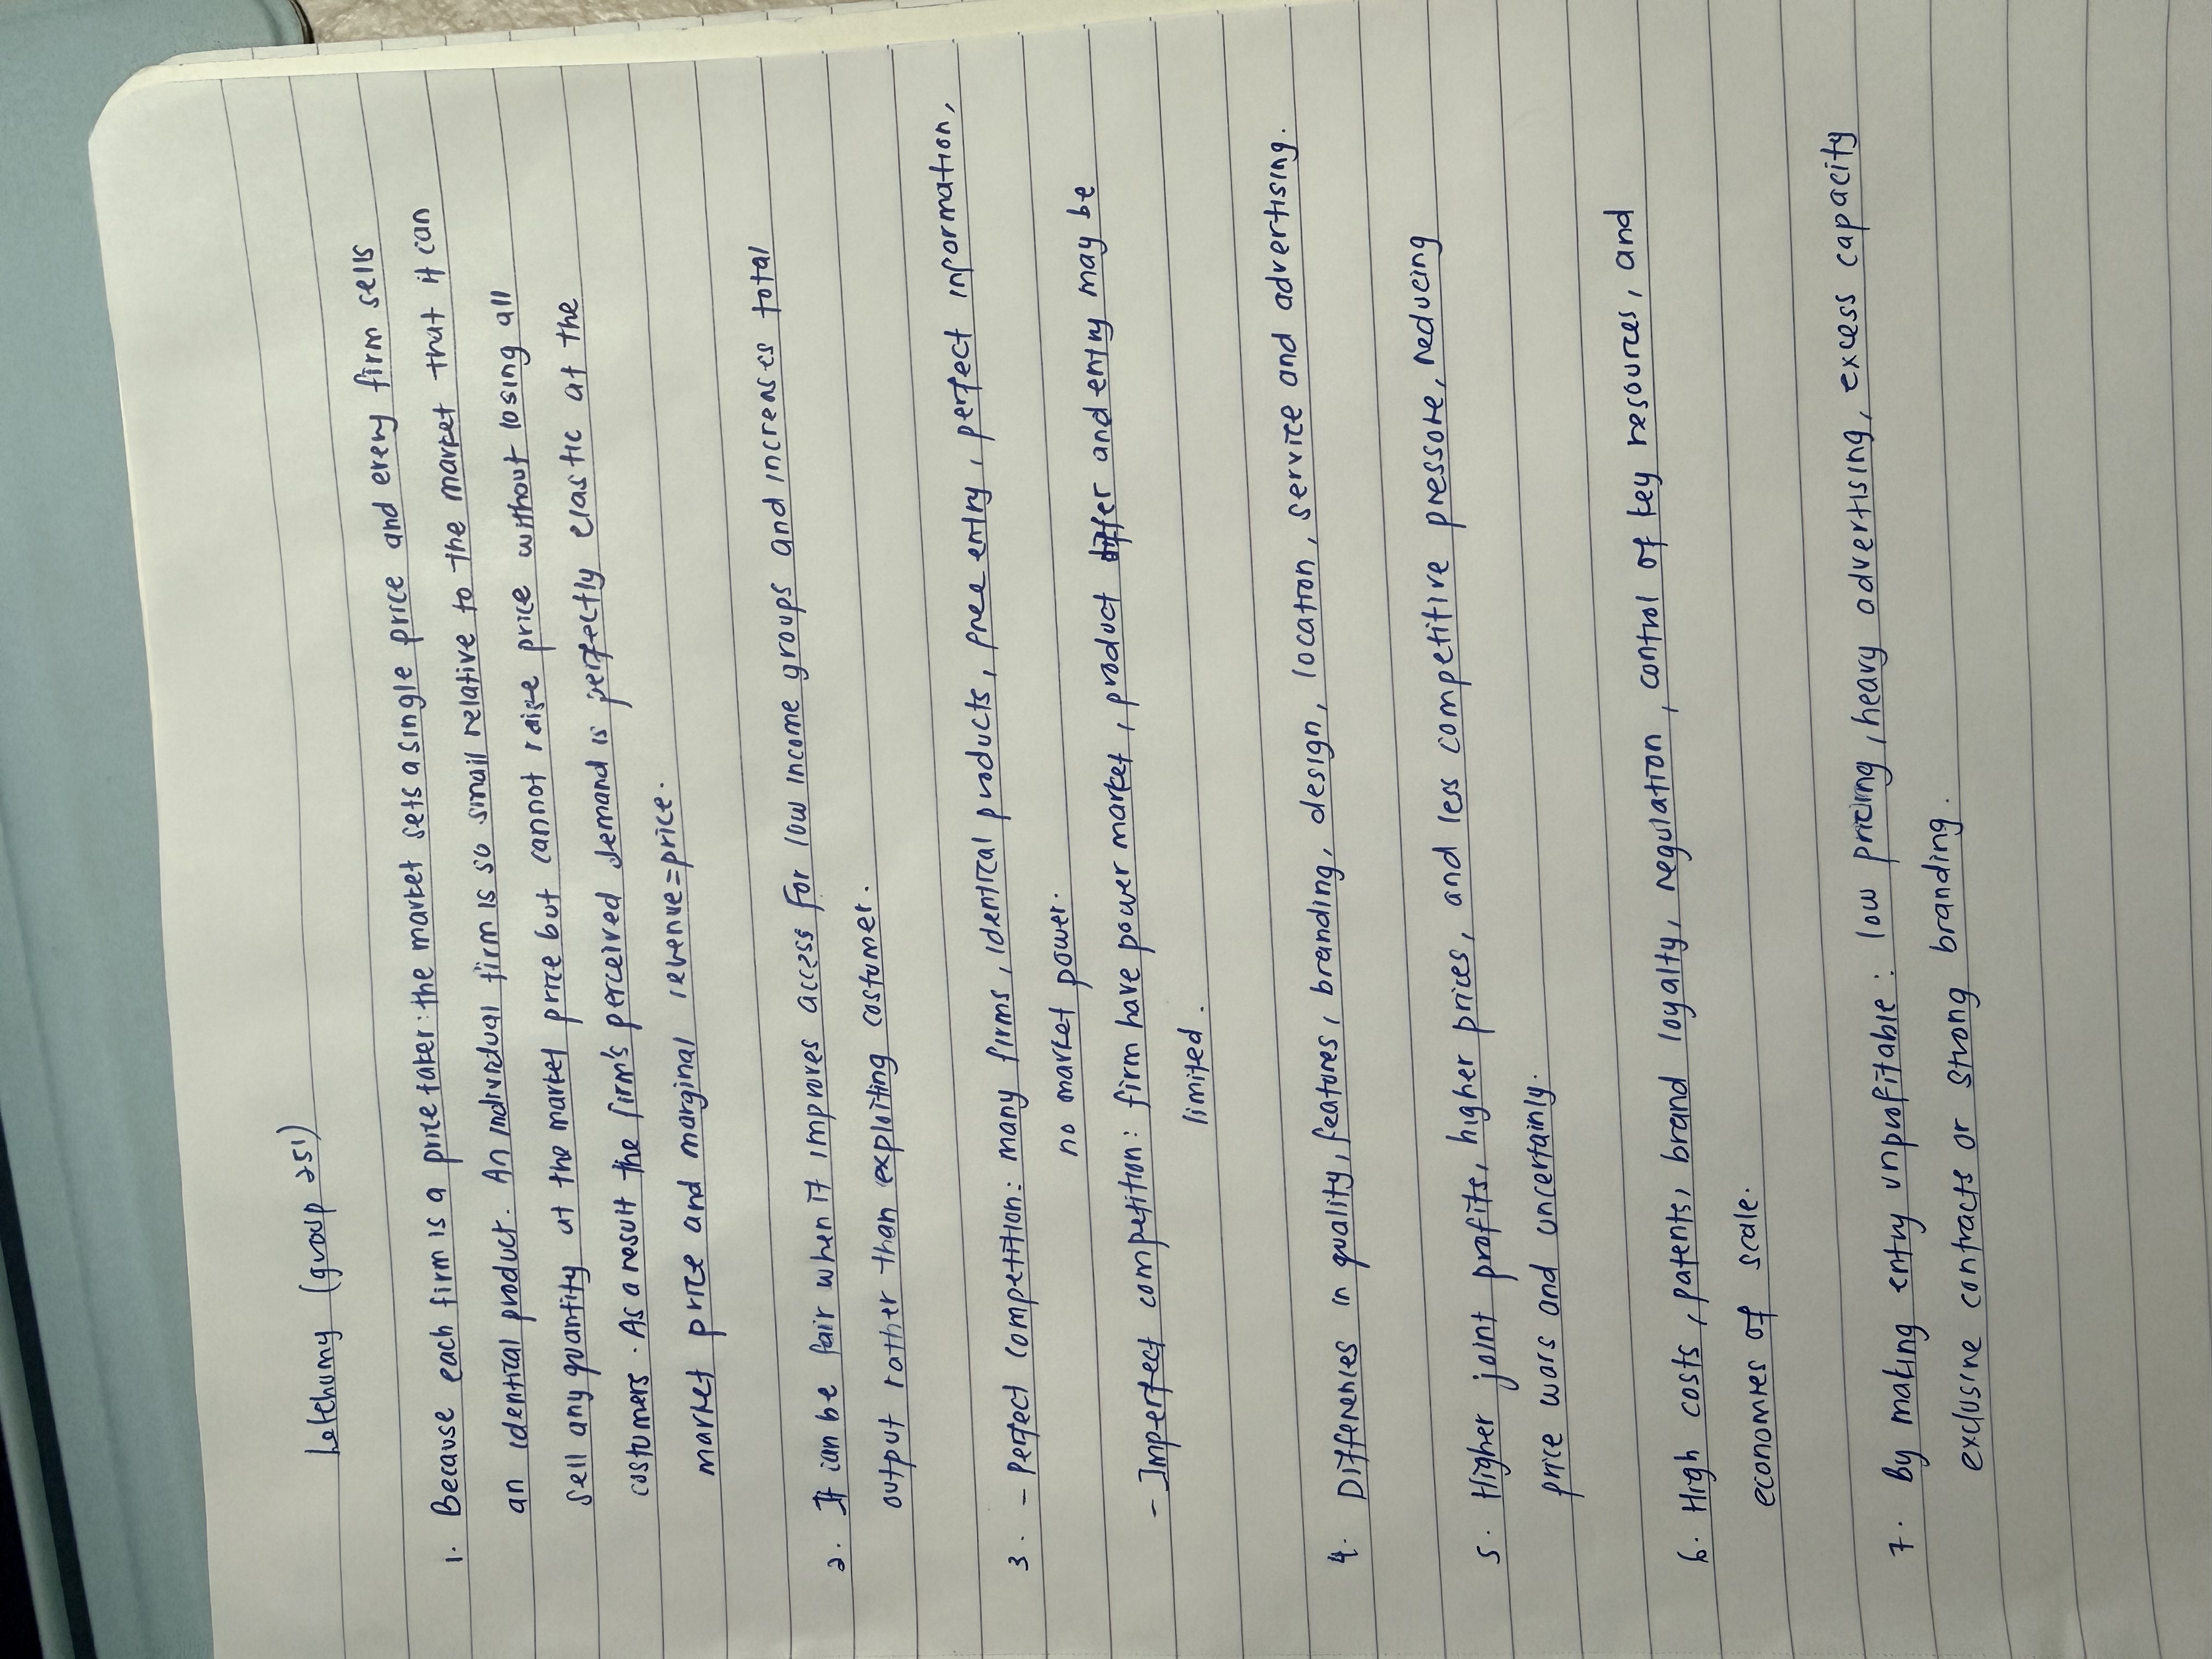 Letchumy (group 251)
1. Because each firm is a price taker: the market sets a single price and every firm sells
an identical product. An individual firm is so small relative to the market that it can
sell any quantity at the market price but cannot raise price without losing all
costumers. As a result the firm's perceived demand is perfectly elastic at the
market price and marginal revenue=price.
2. It can be fair when it improves access for low income groups and increases total
output rather than exploiting costumer.
3. - Perfect competition: many firms, identical products, free entry, perfect information,
no market power.
- Imperfect competition: firm have power market, product differ and entry may be
limited.
4. Differences in quality, features, branding, design, location, service and advertising.
5. Higher joint profits, higher prices, and less competitive pressore, reducing
price wars and uncertainly.
6. High costs, patents, brand loyalty, regulation, control of key resources, and
economies of scale.
7. By making entry unprofitable: low pricing, heavy advertising, excess capacity
exclusive contracts or strong branding.